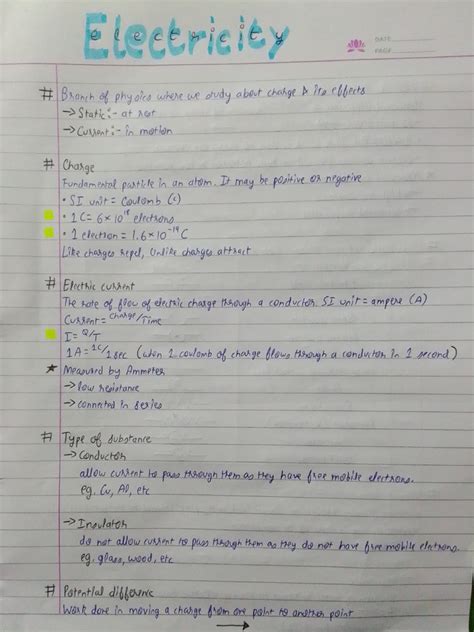 Electricity
electricity
DATE
PAGE
# Branch of physics where we study about charge & its effects
→ Static :- at rest
→ Current :- in motion
# Charge
Fundamental particle in an atom. It may be positive or negative
• SI unit = Coulomb (C)
• 1 C = 6×10¹⁸ electrons
• 1 electron = 1.6×10⁻¹⁹ C
Like charges repel, Unlike charges attract
# Electric current
The rate of flow of electric charge through a conductor. SI unit = ampere (A)
Current = Charge/Time
I = Q/T
1A = 1C/1 sec (when 1 coulomb of charge flows through a conductor in 1 second)
★ Measured by Ammeter
→ low resistance
→ connected in series
# Type of substance
→ Conductor
allow current to pass through them as they have free mobile electrons.
eg. Cu, Al, etc
→ Insulator
do not allow current to pass through them as they do not have free mobile electrons.
eg. glass, wood, etc
# Potential difference
Work done in moving a charge from one point to another point
→